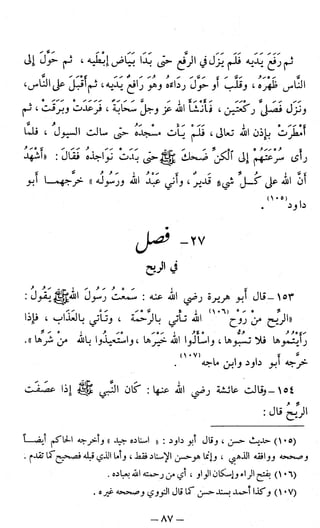 ثم رَفَعَ يَدَيهِ فَلَم يَزَل في الرفعِ حتى بَدَا بَيَاض إبطَيهِ، ثم حَوَّلَ إلى
الناس ظَهْرَه، وقَلَّبَ أو حوَّل رِدَاءَهُ وهوَ رَافِعٌ يَدَيهِ، ثم أقبلَ على الناس،
ونَزَل فَصلَّى ركعتَين، فأَنشَأَ اللهُ عز وجلَّ سَحَابَةً، فَرَعَدَت وبَرقَتْ، ثم
أَمطَرَتْ بإذن اللهِ تعالى، فَلَم يَأتِ مسجدَهُ حتى سالت السيولُ، فلمَّا
رأى سُرعَتَهُم إلى الكِنِّ ضَحِكَ ﷺ حتى بَدَت نَواجِذهُ فقال: «أشهَدُ
أنَّ اللهَ على كـل شيءٍ قديرٌ، وأني عَبْدُ اللهِ ورَسولُه» خرجهما أبو
داود(١٠٥).
٢٧- فصل
في الريح
١٥٣-قال أبو هريرة رضي الله عنه: سَمعتُ رَسولَ اللهِ ﷺ يَقولُ:
«الرِّيحُ من رَوحِ(١٠٦) اللهِ تَأتي بالرَّحْمَةِ، وتَأتي بالعَذَابِ، فإذا
رَأيتُموها فلا تَسُبُّوها، واسأَلُوا اللهَ خَيرَها، واستعيذُوا باللهِ من شرِّها».
خرَّجه أبو داود وابن ماجه(١٠٧).
١٥٤-وقالت عائشة رضي الله عنها: كَان النَّبي ﷺ إذا عصَفَت
الرِّيحُ قال:
(١٠٥) حديث حسن، وقال أبو داود: «اسناده جيد» وأخرجه الحاكم أيضاً
وصححه ووافقه الذهبي، وإنما هو حسن الإسناد فقط، وأما الذي قبله فصحيح كما تقدم.
(١٠٦) بفتح الراء وإسكان الواو، أي من رحمته الله بعباده.
(١٠٧) وكذا أحمد بسند حسن كما قال النووي وصححه غيره.
— ٨٧ —